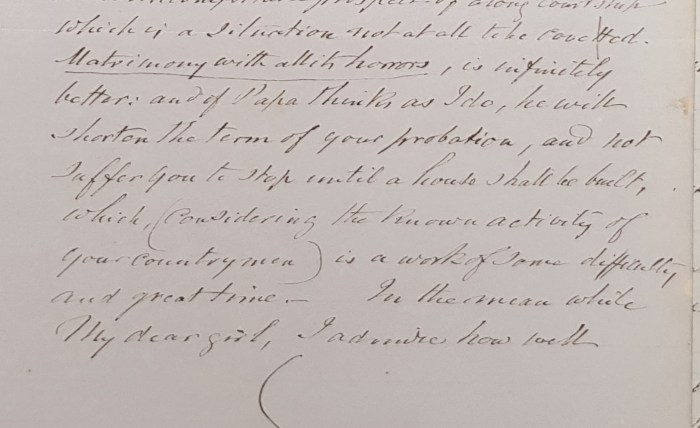 prospect of a long courtship
which is a situation not at all to be coveted.
Matrimony with all its horrors, is infinitely
better: and if Papa thinks as I do, he will
shorten the term of your probation, and not
suffer you to stop until a house shall be built,
which, (considering the known activity of
your countrymen) is a work of some difficulty
and great time. — In the mean while
My dear girl, I admire how well